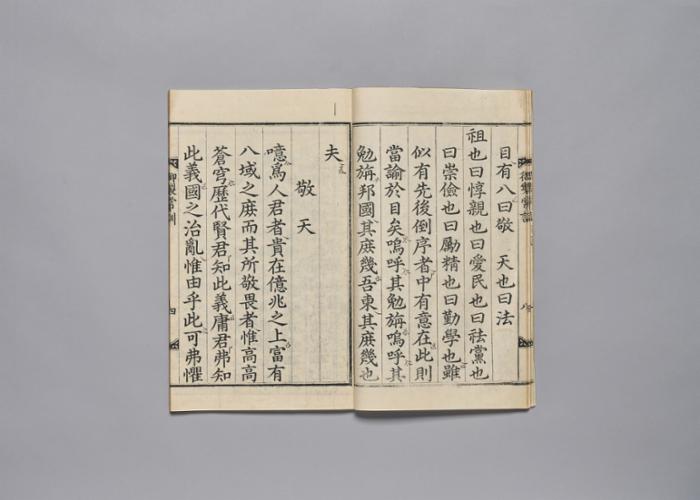 御製常訓
目有八曰敬 天也曰法
祖也曰惇親也曰愛民也曰祛黨也
曰崇儉也曰勵精也曰勤學也雖
似有先後倒序者中有意在此則
當諭於目矣嗚呼其勉旃嗚呼其
勉旃邦國其庶幾吾東其庶幾也
夫
敬 天
噫爲人君者貴在億兆之上富有
八域之庶而其所敬畏者惟高高
蒼穹歷代賢君知此義庸君弗知
此義國之治亂惟由乎此可弗懼
御製常訓 四